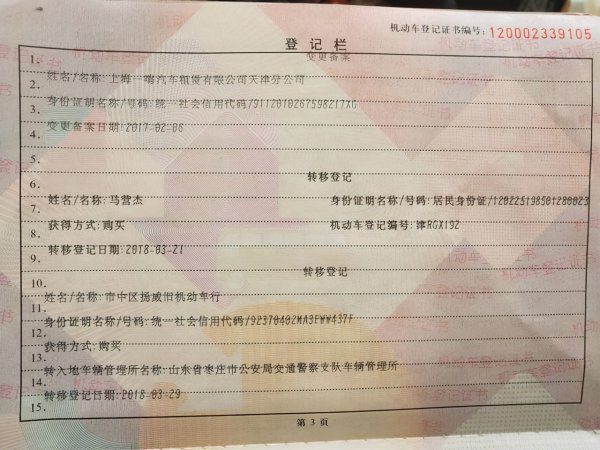 机动车登记证书编号: 120002339105
登记栏
1. 变更备案
2. 姓名/名称:上海一嗨汽车租赁有限公司天津分公司
3. 身份证明名称/号码:统一社会信用代码/9112010267598217XG
4. 变更备案日期:2017-02-06
5.
6. 转移登记
7. 姓名/名称:马营杰 身份证明名称/号码:居民身份证/120225198501280023
8. 获得方式:购买 机动车登记编号:津RGX192
9. 转移登记日期:2018-03-21
10. 转移登记
11. 姓名/名称:市中区扬威旧机动车行
12. 身份证明名称/号码:统一社会信用代码/92370402MA3EWW437F
13. 获得方式:购买
14. 转入地车辆管理所名称:山东省枣庄市公安局交通警察支队车辆管理所
15. 转移登记日期:2018-03-29
第3页